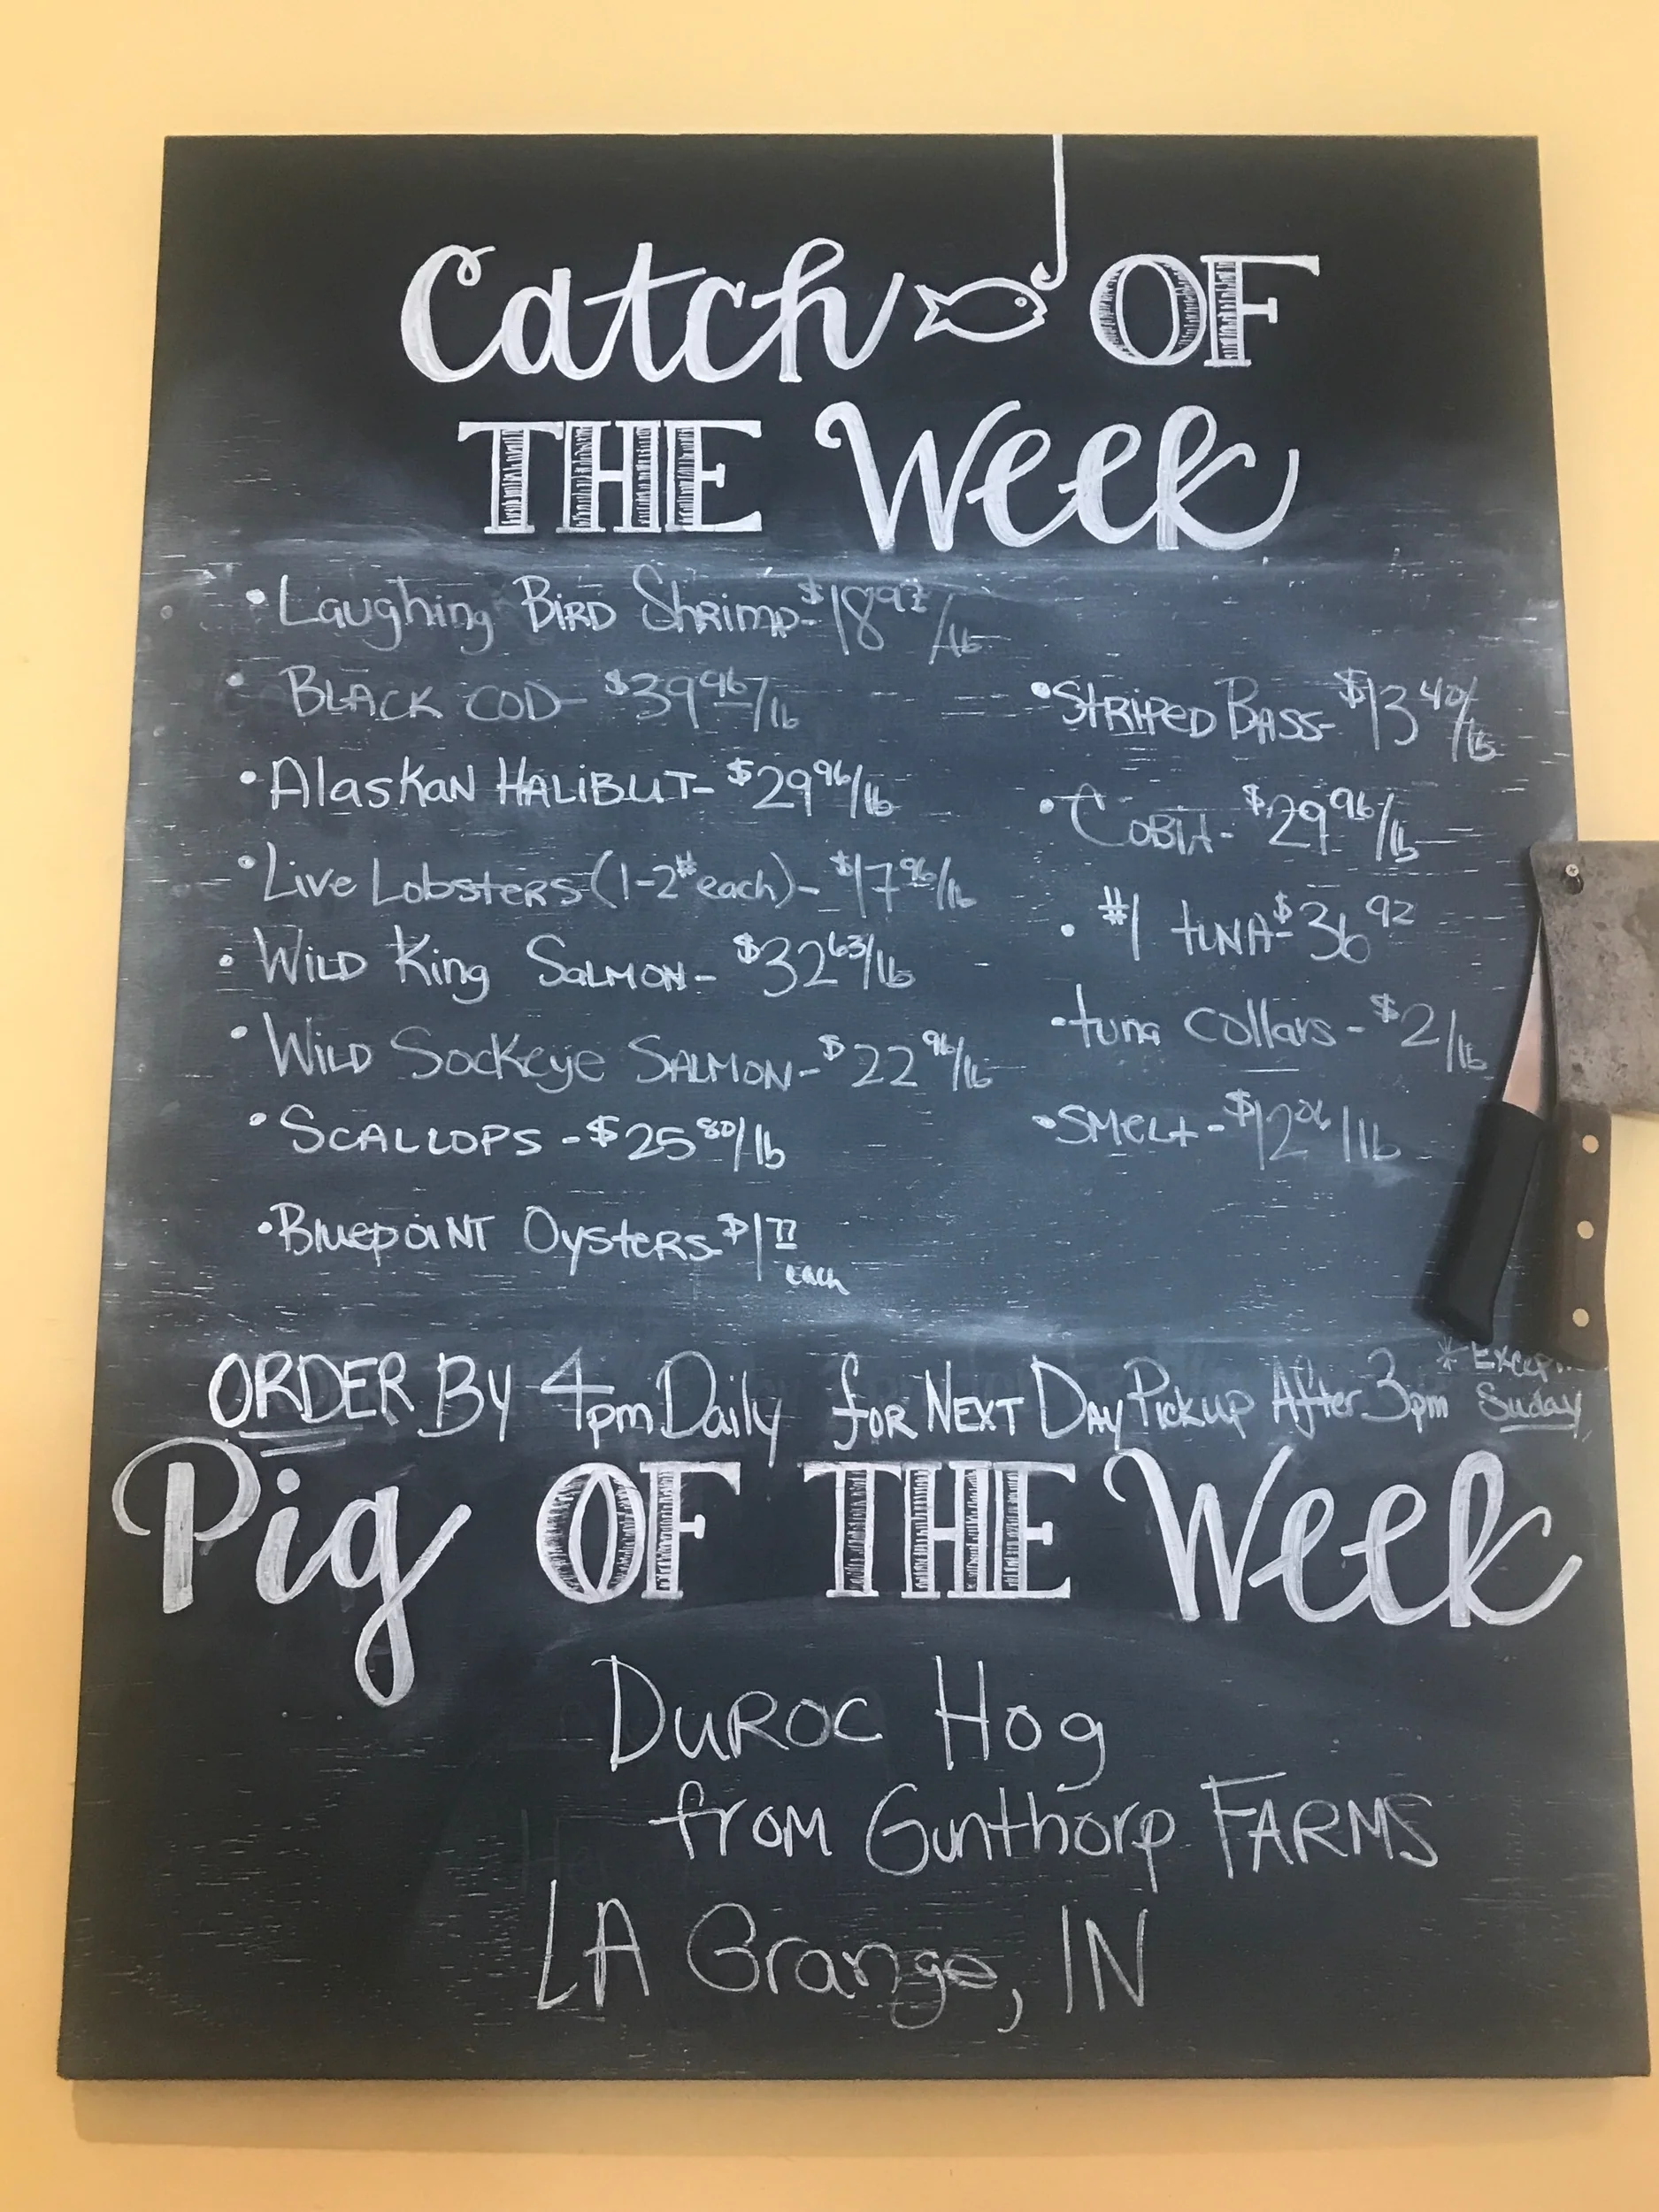 Catch OF
THE Week
• Laughing Bird Shrimp- $18.92/lb
• Black Cod- $39.96/lb
• Alaskan Halibut- $29.96/lb
• Live Lobsters (1-2# each)- $17.96/lb
• Wild King Salmon- $32.63/lb
• Wild Sockeye Salmon- $22.96/lb
• Scallops - $25.80/lb
• Bluepoint Oysters- $1.77
each
• Striped Bass- $13.40/lb
• Cobia- $29.96/lb
• #1 tuna- $36.92
• tuna collars- $2/lb
• Smelt- $12.06/lb
ORDER By 4pm Daily for Next Day Pickup After 3pm * Except
Suday
Pig OF THE Week
Duroc Hog
from Gunthorp FARMS
LA Grange, IN